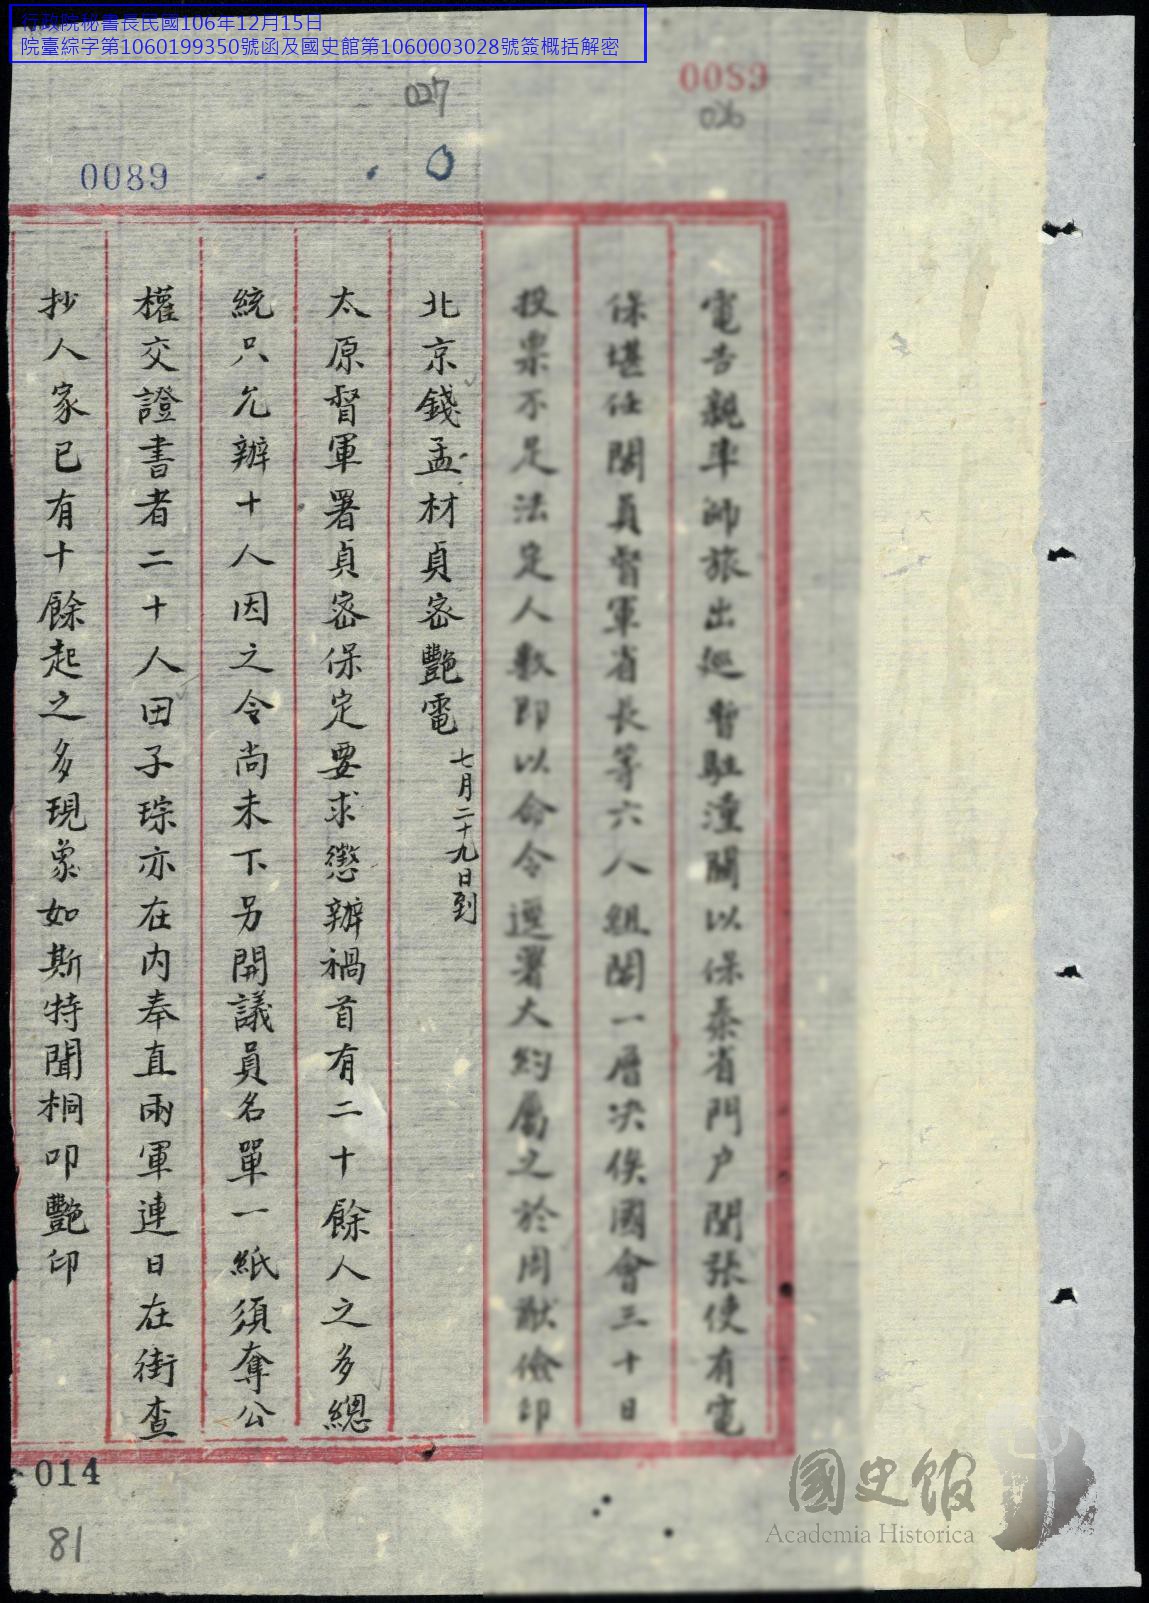 行政院秘書長民國106年12月15日
院臺綜字第1060199350號函及國史館第1060003028號簽概括解密
0089
026
027
0089
電告親率師旅出巡暫駐潼關以保秦省門戶聞張使有電
保堪任閣員督軍省長等六人組閣一層决俟國會三十日
投票不足法定人數即以命令選署大約屬之於周猷儉印
北京錢孟材貞密艷電七月二十九日到
太原督軍署貞密保定要求懲辦禍首有二十餘人之多總
統只允辦十人因之令尚未下另開議員名單一紙須奪公
權交證書者二十人田子琮亦在内奉直兩軍連日在街查
抄人家已有十餘起之多現象如斯特聞桐叩艷印
014
81
國史館
Academia Historica